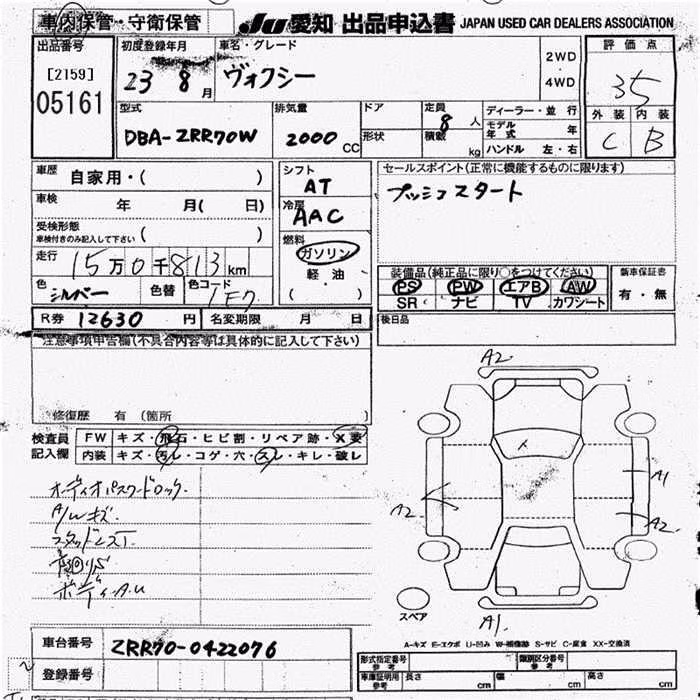 車内保管・守衛保管
JU 愛知 出品申込書 JAPAN USED CAR DEALERS ASSOCIATION
出品番号 初度登録年月 車名・グレード 2WD・4WD 評価点
[2159]
05161 23 8月 ヴォクシー 35
型式 排気量 ドア 定員 ディーラー・並行 外装 内装
DBA-ZRR70W 2000CC 形状 8人 積載 kg モデル年式 年 C B
ハンドル 左・右
車歴 自家用・( ) シフト セールスポイント(正常に機能するものに限ります)
AT プッシュスタート
車検 年 月( 日) 冷房
AAC
受検形態 車検付きのみ記入して下さい ( ) 燃料
走行 15万0千813km ガソリン 装備品(純正品に限り○をつけてください) 新車保証書
軽油 PS PW エアB AW 有・無
色 シルバー 色替 色コード 1F7 ( ) SR ナビ TV カワシート
R券 12630円 名変期限 月 日 後日品
注意事項申告欄(不具合内容等は具体的に記入して下さい)
A2
修復歴 有 (箇所 )
検査員記入欄 FW キズ・飛石・ヒビ割・リペア跡・X要
内装 キズ・汚レ・コゲ・穴・スレ・キレ・破レ
オーディオパスワードロック.
A1
A/Wキズ.
A2 A2
ボディA.U
スペア
A1
車台番号 ZRR70-0422076 A-キズ E-エクボ U-凹み W-補修跡 S-サビ C-腐食 XX-交換済
登録番号 形式指定番号 参考 類別区分番号 参考
車庫証明用 参考 長さ cm 幅 cm 高さ cm